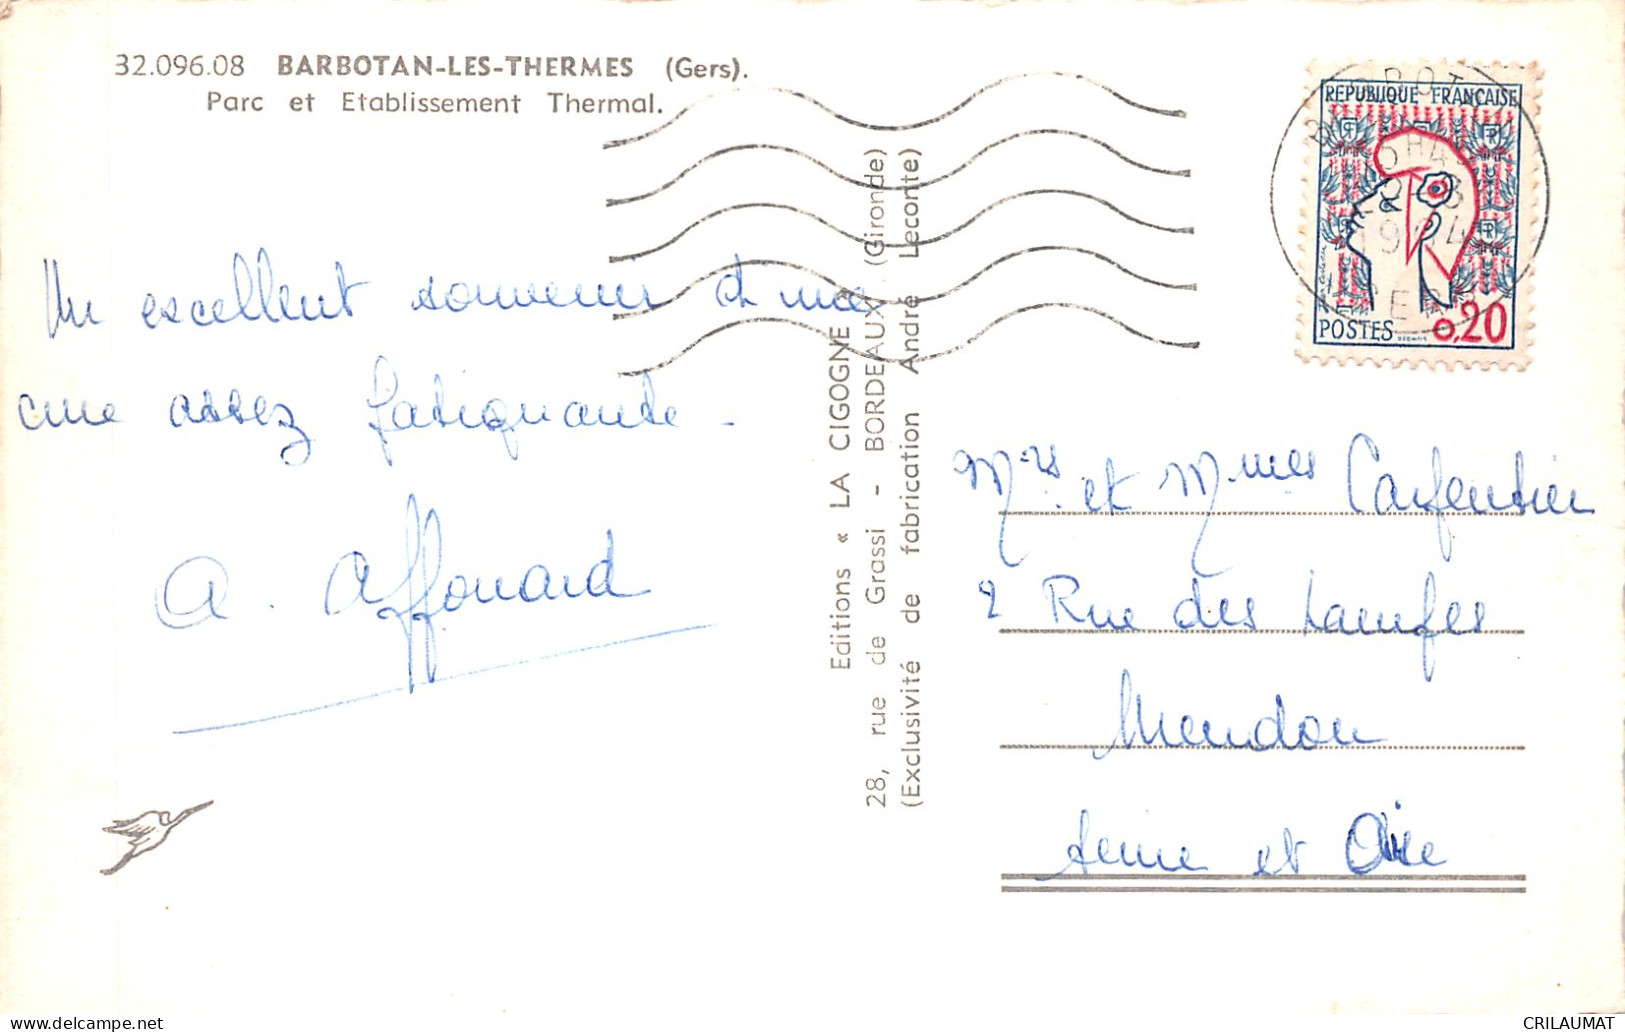 32.096.08 BARBOTAN-LES-THERMES (Gers).
Parc et Etablissement Thermal.
Un excellent souvenir d'une
cure assez fatiguante.
A. Affouard
Editions « LA CIGOGNE »
28, rue de Grassi - BORDEAUX (Gironde)
(Exclusivité de fabrication André Leconte)
REPUBLIQUE FRANÇAISE
POSTES 0,20
1964
Mrs et Mmes Carpentier
2 Rue des
Meudon
Seine et Oise
delcampe.net
CRILAUMAT